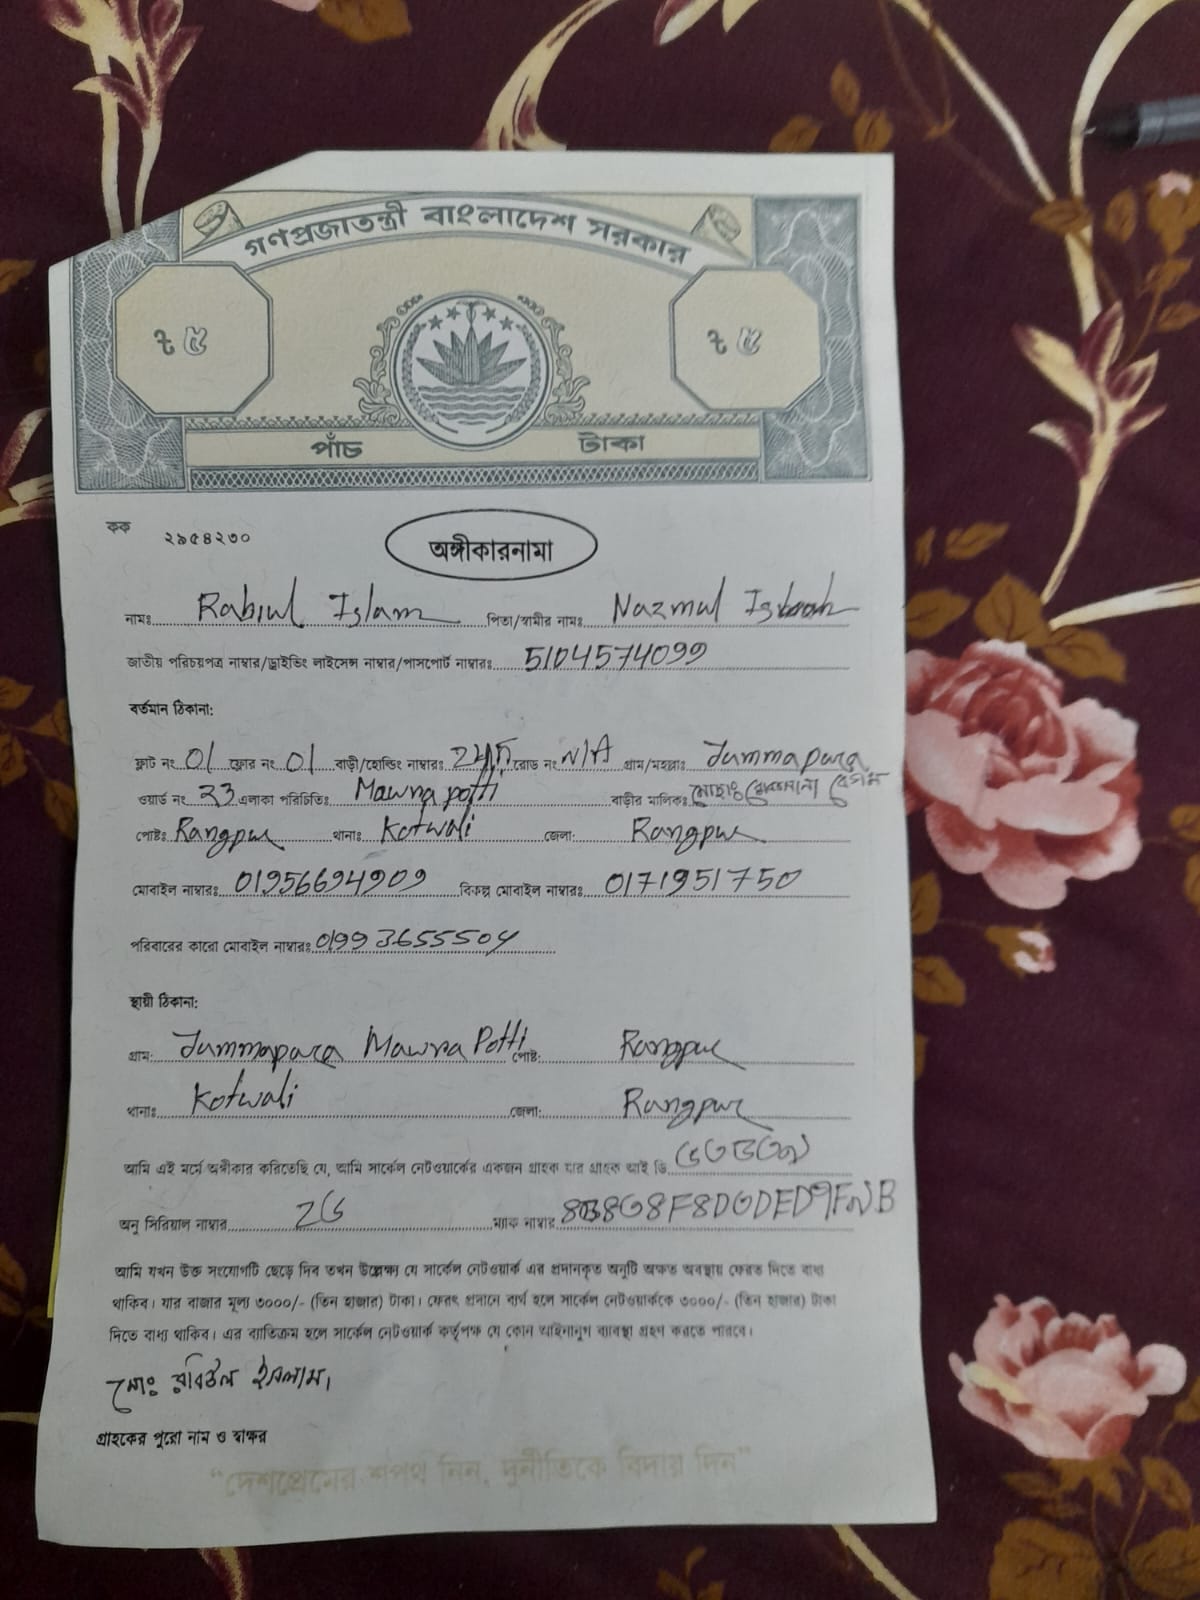 গণপ্রজাতন্ত্রী বাংলাদেশ সরকার
৳ ৫ ৳ ৫
পাঁচ টাকা
কক ২৯৫৪২৩০
অঙ্গীকারনামা
নামঃ Rabiul Islam পিতা/স্বামীর নামঃ Nazmul
জাতীয় পরিচয়পত্র নাম্বার/ড্রাইভিং লাইসেন্স নাম্বার/পাসপোর্ট নাম্বারঃ 5104574099
বর্তমান ঠিকানা:
ফ্লাট নং 01 ফ্লোর নং 01 বাড়ী/হোল্ডিং নাম্বারঃ রোড নং N/A গ্রাম/মহল্লাঃ Jummapara
ওয়ার্ড নং 23 এলাকা পরিচিতিঃ Mawna potti বাড়ীর মালিকঃ মোছাঃ বেগম
পোষ্টঃ Rangpur থানাঃ Kotwali জেলা: Rangpur
মোবাইল নাম্বারঃ 01956694909 বিকল্প মোবাইল নাম্বারঃ 0171951750
পরিবারের কারো মোবাইল নাম্বারঃ 01993655504
স্থায়ী ঠিকানা:
গ্রাম: Jummapara Mawna Potti পোষ্ট: Rangpur
থানাঃ Kotwali জেলা: Rangpur
আমি এই মর্মে অঙ্গীকার করিতেছি যে, আমি সার্কেল নেটওয়ার্কের একজন গ্রাহক যার গ্রাহক আই ডি
অনু সিরিয়াল নাম্বার ম্যাক নাম্বার
আমি যখন উক্ত সংযোগটি ছেড়ে দিব তখন উল্লেক্ষ্য যে সার্কেল নেটওয়ার্ক এর প্রদানকৃত অনুটি অক্ষত অবস্থায় ফেরত দিতে বাধ্য
থাকিব। যার বাজার মূল্য ৩০০০/- (তিন হাজার) টাকা। ফেরৎ প্রদানে ব্যর্থ হলে সার্কেল নেটওয়ার্ককে ৩০০০/- (তিন হাজার) টাকা
দিতে বাধ্য থাকিব। এর ব্যতিক্রম হলে সার্কেল নেটওয়ার্ক কর্তৃপক্ষ যে কোন আইনানুগ ব্যাবস্থা গ্রহণ করতে পারবে।
মোঃ রবিউল ইসলাম।
গ্রাহকের পুরো নাম ও স্বাক্ষর
“দেশপ্রেমের শপথ নিন, দুর্নীতিকে বিদায় দিন”